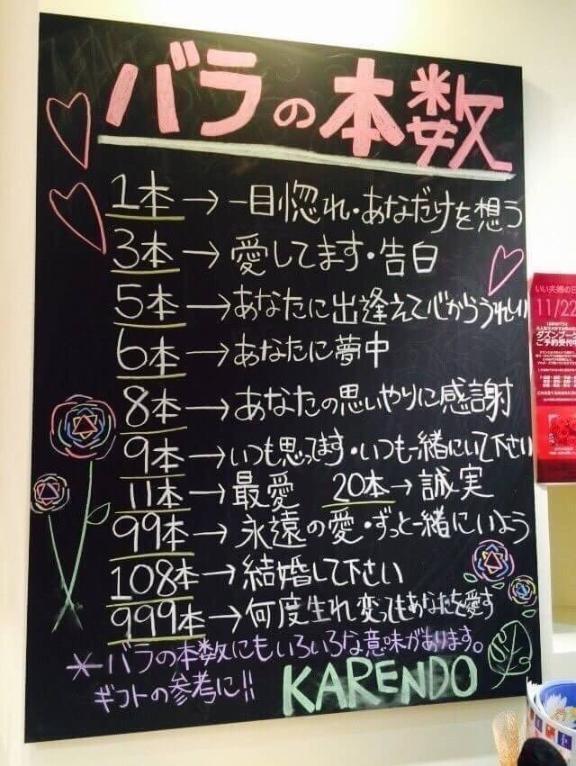 バラの本数
1本→一目惚れ・あなただけを想う
3本→愛してます・告白
5本→あなたに出逢えて心からうれしい
6本→あなたに夢中
8本→あなたの思いやりに感謝
9本→いつも思ってます・いつも一緒にいて下さい
11本→最愛 20本→誠実
99本→永遠の愛・ずっと一緒にいよう
108本→結婚して下さい
999本→何度生れ変ってもあなたを愛す
*バラの本数にもいろいろな意味があります。
ギフトの参考に!!
KARENDO
いい夫婦の日
11/22
ご予約受付中